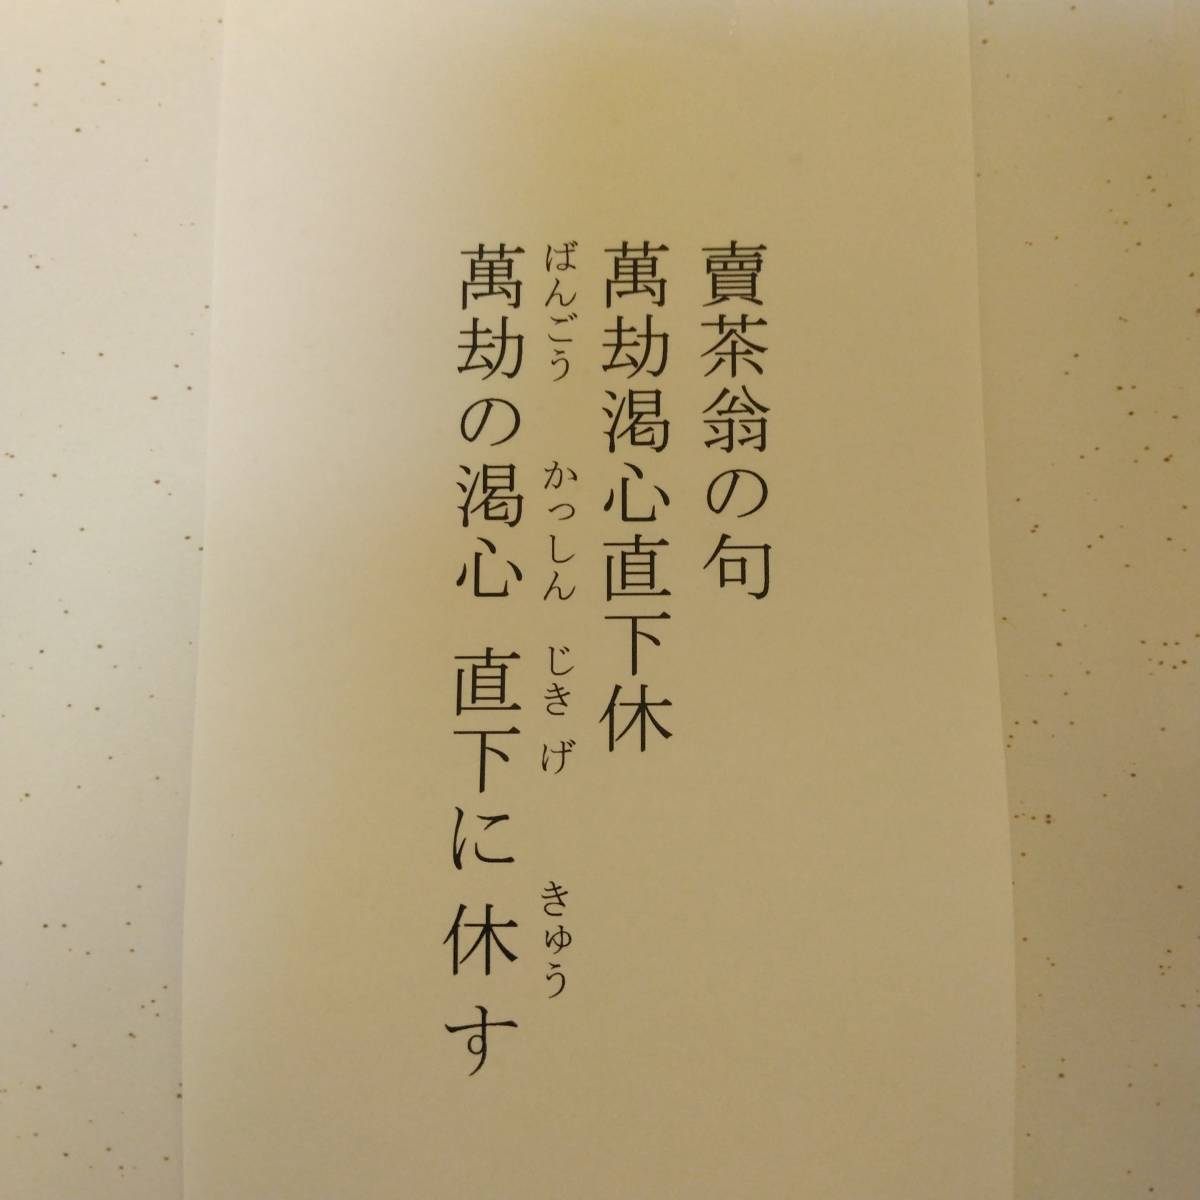 賣茶翁の句
萬劫渇心直下休
ばんごう かっしん じきげ きゅう
萬劫の渇心 直下に休す